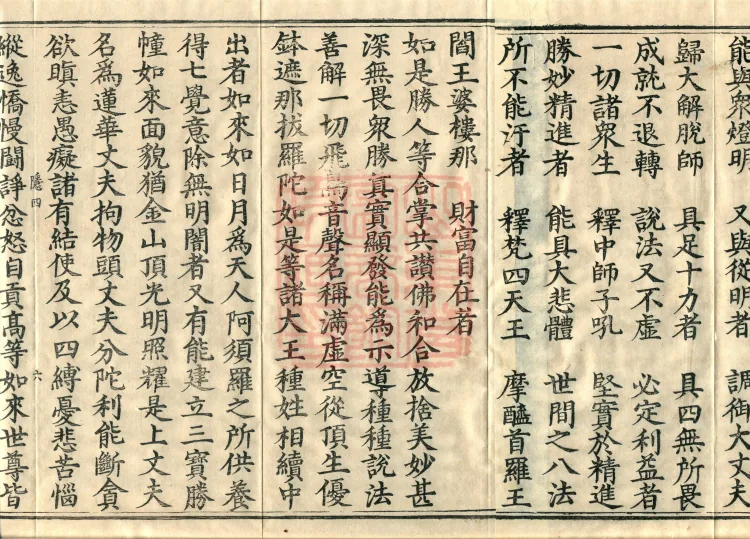 能與衆燈明　又與從明者　調御大丈夫
歸大解脫師　具足十力者　具四無所畏
成就不退轉　說法又不虛　必定利益者
一切諸衆生　釋中師子吼　堅實於精進
勝妙精進者　能具大悲體　世間之八法
所不能汙者　釋梵四天王　摩醯首羅王
閻王婆樓那　財富自在者
如是勝人等合掌共讚佛和合放捨美妙甚
深無畏衆勝真實顯發能爲示導種種說法
善解一切飛鳥音聲名稱滿虛空從頂生優
鉢遮那拔羅陀如是等諸大王種姓相續中
出者如來如日月爲天人阿須羅之所供養
得七覺意除無明闇者又有能建立三寶勝
幢如來面貌猶金山頂光明照耀是上丈夫
名爲蓮華丈夫拘物頭丈夫分陀利能斷貪
欲瞋恚愚癡諸有結使及以四縛憂悲苦惱
隱四　六
縱逸憍慢鬪諍忿怒自貢高等如來世尊皆